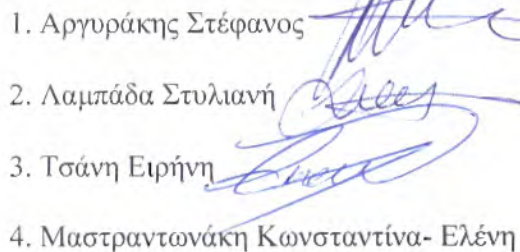 1. Αργυράκης Στέφανος
2. Λαμπάδα Στυλιανή
3. Τσάνη Ειρήνη
4. Μαστραντωνάκη Κωνσταντίνα- Ελένη